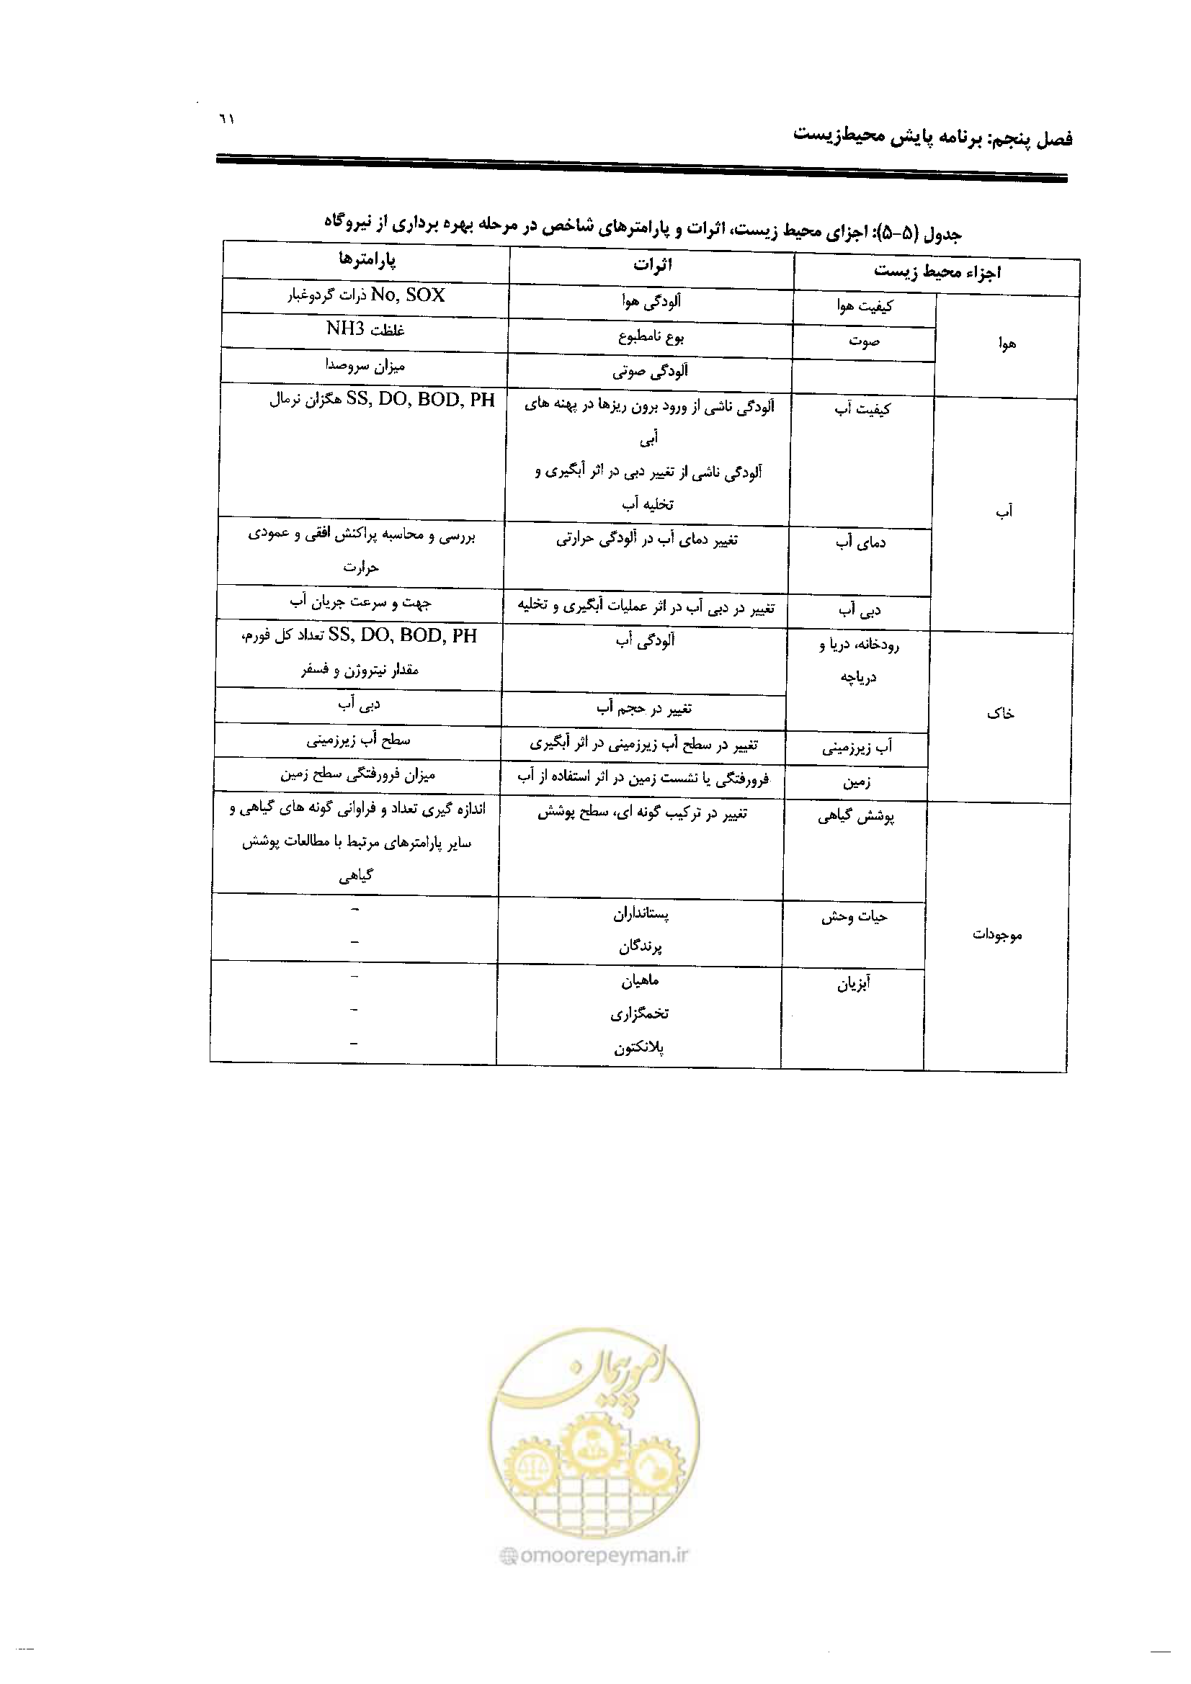 فصل پنجم: برنامه پایش محیط‌زیست
٦١
جدول (۵-۵): اجزای محیط زیست، اثرات و پارامترهای شاخص در مرحله بهره برداری از نیروگاه
اجزاء محیط زیست
اثرات
پارامترها
هوا
کیفیت هوا
آلودگی هوا
No, SOX ذرات گردوغبار
صوت
بوع نامطبوع
غلظت NH3
آلودگی صوتی
میزان سروصدا
آب
کیفیت آب
آلودگی ناشی از ورود برون ریزها در پهنه های
آبی
آلودگی ناشی از تغییر دبی در اثر آبگیری و
تخلیه آب
SS, DO, BOD, PH هگزان نرمال
دمای آب
تغییر دمای آب در آلودگی حرارتی
بررسی و محاسبه پراکنش افقی و عمودی
حرارت
دبی آب
تغییر در دبی آب در اثر عملیات آبگیری و تخلیه
جهت و سرعت جریان آب
خاک
رودخانه، دریا و
دریاچه
آلودگی آب
SS, DO, BOD, PH تعداد کل فورم،
مقدار نیتروژن و فسفر
تغییر در حجم آب
دبی آب
آب زیرزمینی
تغییر در سطح آب زیرزمینی در اثر آبگیری
سطح آب زیرزمینی
زمین
فرورفتگی یا نشست زمین در اثر استفاده از آب
میزان فرورفتگی سطح زمین
موجودات
پوشش گیاهی
تغییر در ترکیب گونه ای، سطح پوشش
اندازه گیری تعداد و فراوانی گونه های گیاهی و
سایر پارامترهای مرتبط با مطالعات پوشش
گیاهی
حیات وحش
پستانداران
–
پرندگان
–
آبزیان
ماهیان
–
تخمگزاری
–
پلانکتون
–
امور پیمان
@omoorepeyman.ir